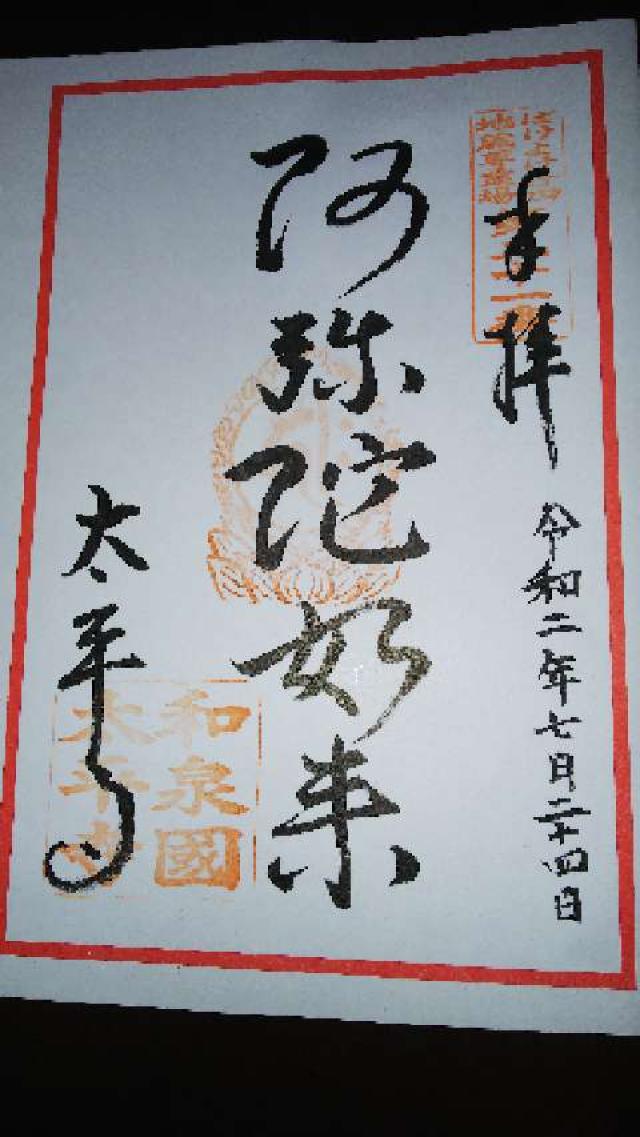 奉拝
令和二年七月二十四日
阿弥陀如来
太平寺
和泉國
太平寺